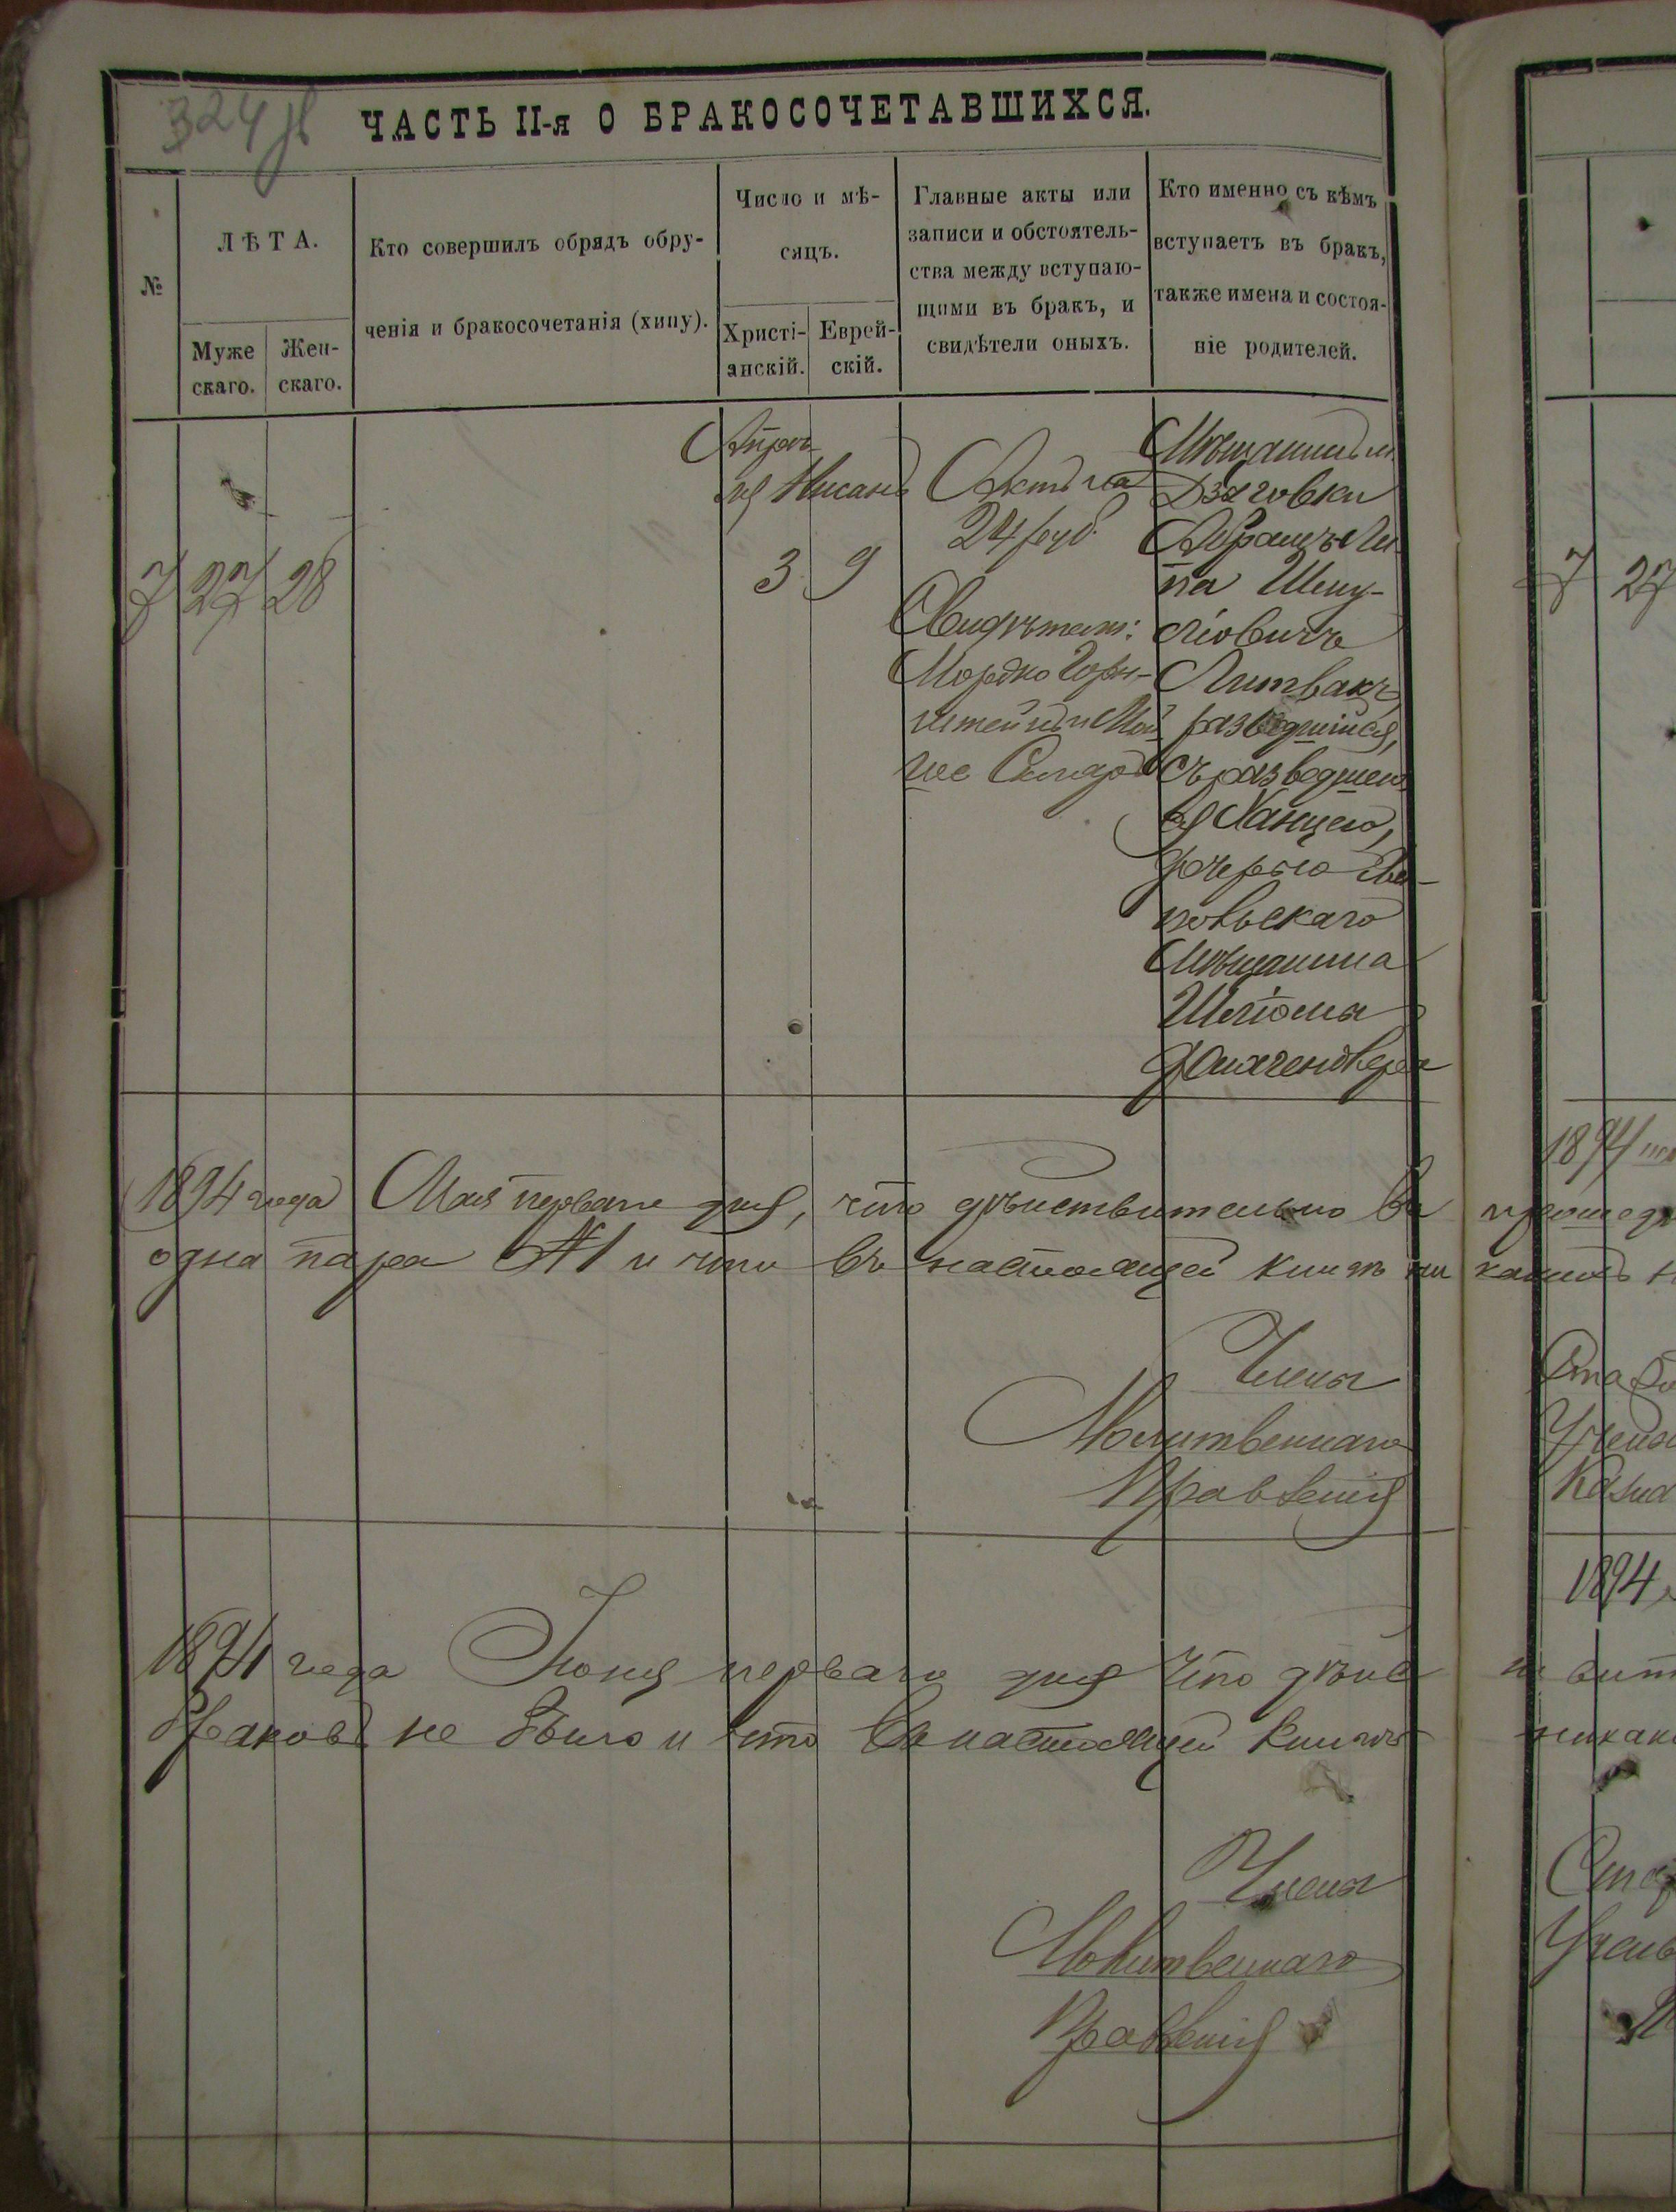 324
ЧАСТЬ II-я О БРАКОСОЧЕТАВШИХСЯ.
№
ЛѢТА.
Муже
скаго.
Жен-
скаго.
Кто совершилъ обрядъ обру-
ченія и бракосочетанія (хипу).
Число и мѣ-
сяцъ.
Христі-
анскій.
Еврей-
скій.
Главные акты или
записи и обстоятель-
ства между вступаю-
щими въ бракъ, и
свидѣтели оныхъ.
Кто именно съ кѣмъ
вступаетъ въ бракъ,
также имена и состоя-
ніе родителей.
7
27
28
Апрѣ-
ля
3
Нисанъ
9
Актъ на
24 руб.
Свидѣтели:
Мордко Горн-
штейнъ и Мой
ше Скляръ
Мѣщанинъ м.
Абрамъ Ли
па Шму-
ліовичъ
Литвакъ,
разведшійся,
съ разведшею
ся Ханцею,
дочерью
польскаго
мѣщанина
Шліома
1894 года Мая перваго дня, что дѣйствительно въ прошед
одна пара №1 и что въ настоящей книгѣ ни какихъ
Члены
Молитвеннаго
Правленія
1894 года Іюня перваго дня что дѣйс вит
браковъ не было и что въ настоящей книгѣ никак
Члены
Молитвеннаго
Правленія
7
27
1894
Учены
Казна
1894
Учены